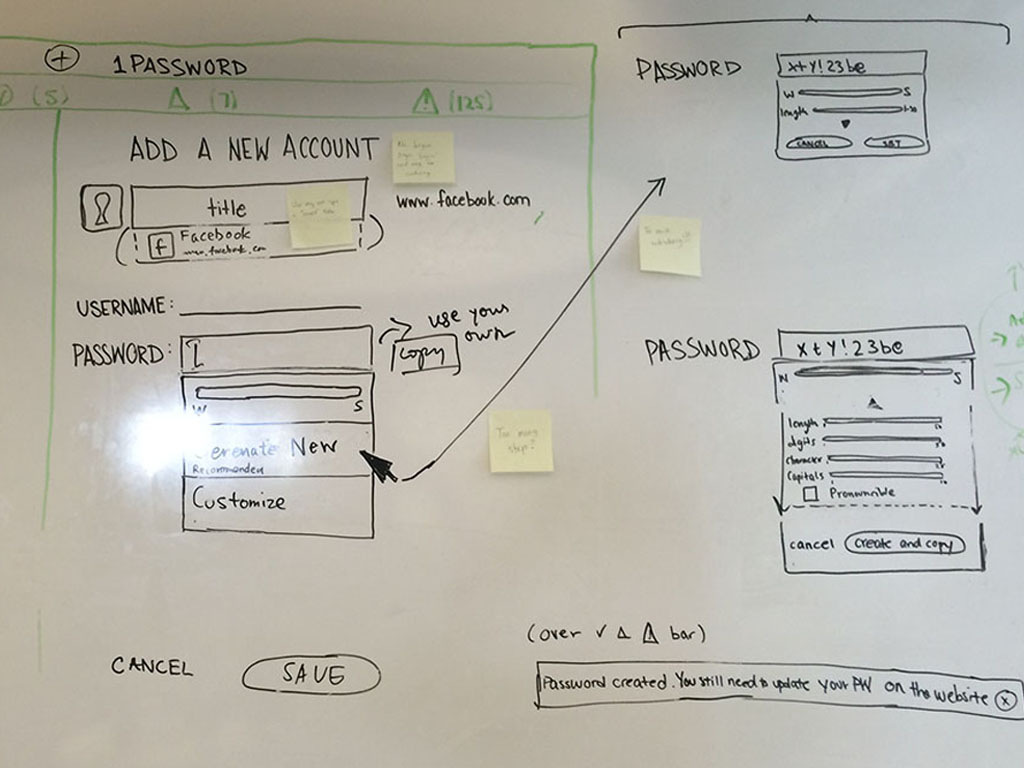 + 1 PASSWORD
(5) (7) ! (125)
ADD A NEW ACCOUNT
title
www.facebook.com
f Facebook
www.facebook.com
USERNAME:
PASSWORD:
use your
own
copy
W S
Generate New
Recommended
Customize
Too many
step?
CANCEL SAVE
PASSWORD
xtY!23be
W S
length
CANCEL SET
PASSWORD
xtY!23be
W S
length
digits
character
Capitals
Pronounceable
cancel create and copy
(over √ Δ Δ bar)
Password created. You still need to update your PW on the website x